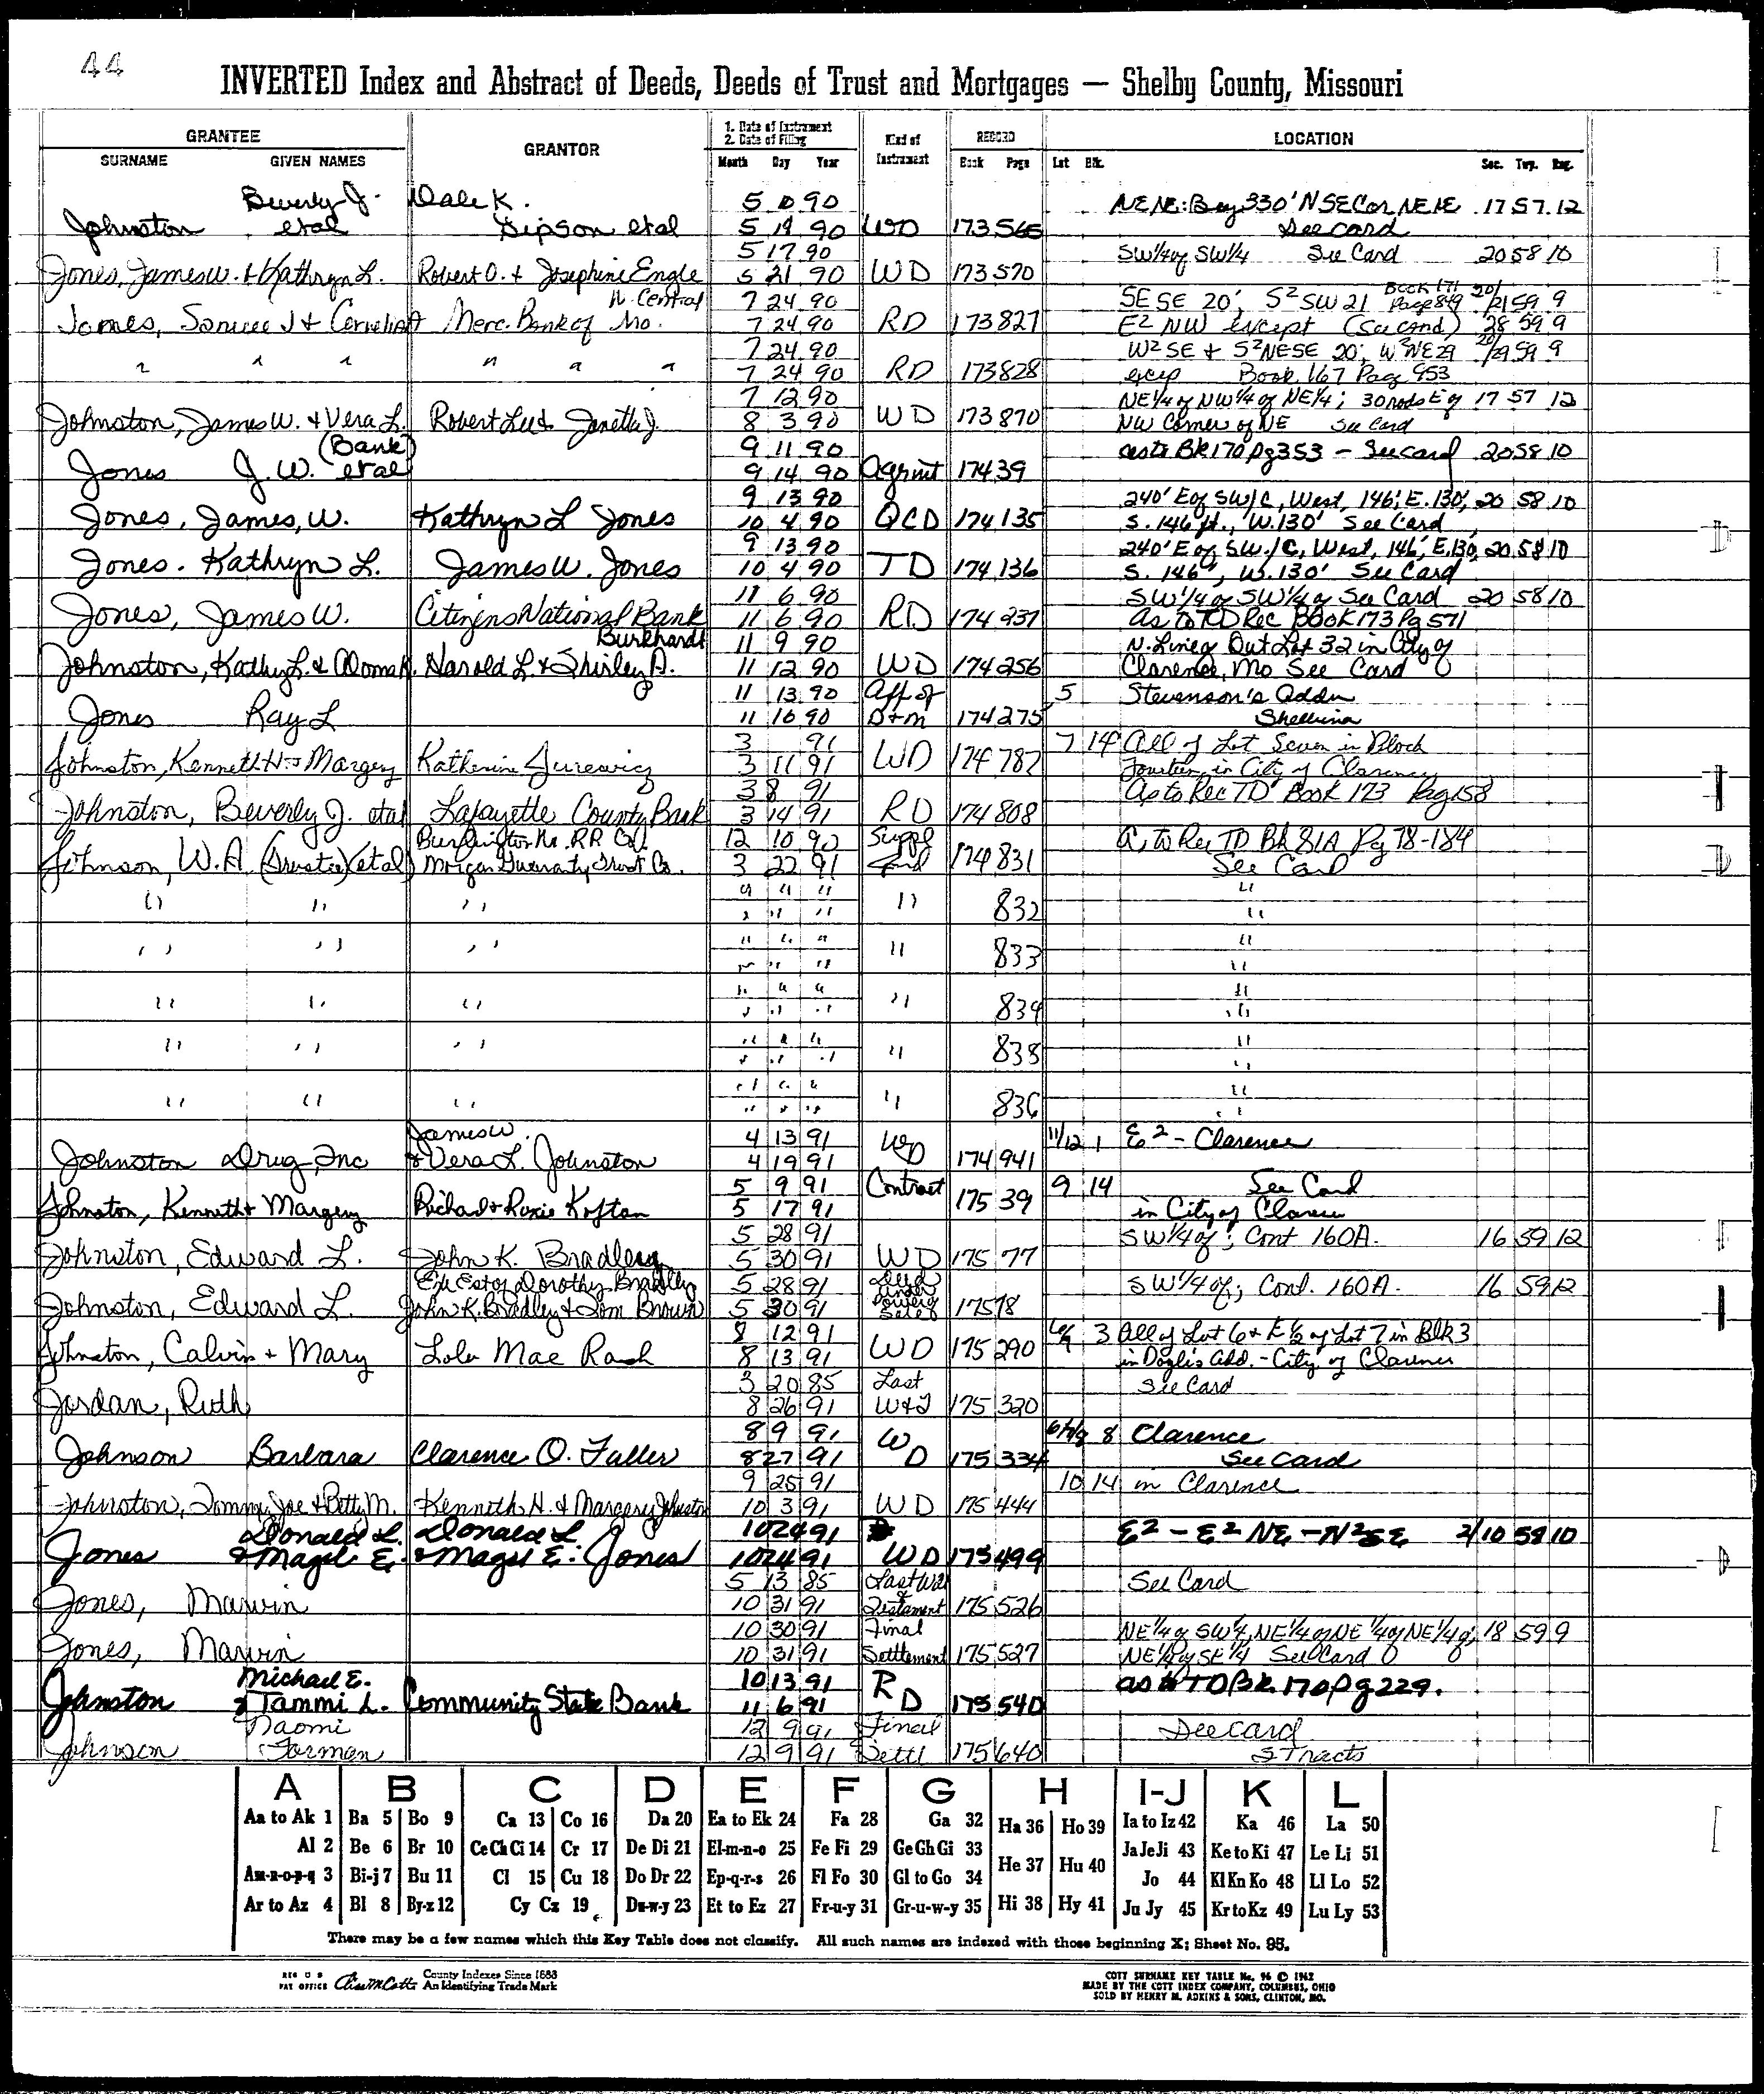 44
INVERTED Index and Abstract of Deeds, Deeds of Trust and Mortgages — Shelby County, Missouri
GRANTEE GRANTOR 1. Date of Instrument 2. Date of Filing Kind of Instrument RECORD LOCATION
SURNAME GIVEN NAMES Month Day Year Book Page Lot Blk. Sec. Twp. Rng.
Beverly J. Dale K. 5 10 90 NE NE: Beg 330' N SE Cor NE NE 17 57 12
Johnston etal Gipson etal 5 14 90 WD 173 565 See card
5 17 90 SW1/4 of SW1/4 See Card 20 58 10
Jones, James W. & Kathryn L. Robert O. & Josephine Engle 5 21 90 WD 173 570
N. Central 7 24 90 SE SE 20; S2 SW 21 Book 171 Page 849 20/21 59 9
James, & Cornelia A Merc. Bank of Mo. 7 24 90 RD 173 827 E2 NW except (See card) 28 59 9
7 24 90 W2 SE & S2 NE SE 20; W2 NE 29 20/29 59 9
" " " " " " 7 24 90 RD 173 828 excp Book 167 Pag 953
7 12 90 NE1/4 of NW1/4 of NE1/4; 30 rods E of 17 57 12
Johnston, James W. & Vera L. Robert Lee & Janetta J. 8 3 90 WD 173 870 NW Corner of NE See Card
(Bank) 9 11 90 as to Bk 170 pg 353 - See card 20 58 10
Jones J. W. etal 9 14 90 Agrmt 174 39
9 13 90 240' E of SW/C, West, 146', E. 130', 20 58 10
Jones, James, W. Kathryn L Jones 10 4 90 QCD 174 135 S. 146 ft., W. 130' See Card
9 13 90 240' E of SW/C, West, 146', E. 130', 20 58 10
Jones. Kathryn L. James W. Jones 10 4 90 TD 174 136 S. 146', W. 130' See Card
11 6 90 SW1/4 of SW1/4 of See Card 20 58 10
Jones, James W. Citizens National Bank 11 6 90 RD 174 237 As to TD Rec Book 173 Pg 571
Burkhardt 11 9 90 N. Line of Out Lot 32 in City of
Johnston, Kathy L. & Harold L. & Shirley A. 11 12 90 WD 174 256 Clarence, Mo See Card
11 13 90 Aff of 5 Stevenson's Addn
Jones Ray L 11 16 90 D+M 174 275 Shelbina
3 91 WD 7 14 All of Lot Seven in Block
Johnston, Kenneth H. & Margery Katherine Jurewicz 3 11 91 174 782 Fourteen in City of Clarence
3 8 91 As to Rec TD Book 173 Pg 158
Johnston, Beverly J. etal Lafayette County Bank 3 14 91 RD 174 808
Burlington No. RR Co. 12 10 90 Suppl As to Rec TD Bk 81A Pg 78-184
Johnson, W. A. (Trustee)(etal) Morgan Guaranty Trust Co. 3 22 91 Ind 174 831 See Card
" " " " " " " 832 "
" " " " " " " 833 "
" " " " " " " 834 "
" " " " " " " 835 "
" " " " " " " 836 "
James W. 4 13 91 WD 11/12 1 E2 - Clarence
Johnston Drug, Inc & Vera L. Johnston 4 19 91 174 941
5 9 91 Contract 9 14 See Card
Johnston, Kenneth & Margery Richard & Roxie Kofton 5 17 91 175 39 in City of Clarence
5 28 91 SW1/4 of; Cont 160A. 16 59 12
Johnston, Edward L. John K. Bradley 5 30 91 WD 175 77
Ex Est of Dorothy Bradley 5 28 91 Deed Under SW1/4 of; Cont. 160A. 16 59 12
Johnston, Edward L. John K. Bradley & Tom Brown 5 30 91 Power of Sale 175 78
8 12 91 6/7 3 All of Lot 6 & E 1/2 of Lot 7 in Blk 3
Johnston, Calvin & Mary Lola Mae Rash 8 13 91 WD 175 290 in Doyle's Add. - City of Clarence
3 20 85 Last See Card
Jordan, Ruth 8 26 91 W&T 175 320
8 9 91 WD 6/7/8 8 Clarence
Johnson Barbara Clarence O. Fuller 8 27 91 175 334 See Card
9 25 91 10 14 in Clarence
Johnston, Tommy Joe & Betty M. Kenneth H. & Margery Johnston 10 3 91 WD 175 444
Donald L. Donald L. 10 24 91 E2 - E2 NE - N2 SE 2/10 58 10
Jones & Magel E. & Magel E. Jones 10 24 91 WD 175 499
5 13 85 Last Will & See Card
Jones, Marvin 10 31 91 Testament 175 526
10 30 91 Final NE1/4 of SW1/4, NE1/4 of NE1/4 of NE1/4 of, 18 59 9
Jones, Marvin 10 31 91 Settlement 175 527 NE1/4 of SE1/4 See Card
Michael E. 10 13 91 RD as to TD Bk. 170 Pg 229.
Johnston & Tammi L. Community State Bank 11 6 91 175 540
Naomi 12 9 91 Final See card
Johnson Forman 12 9 91 Settl 175 640 5 Tracts
A B C D E F G H I-J K L
Aa to Ak 1 Ba 5 Bo 9 Ca 13 Co 16 Da 20 Ea to Ek 24 Fa 28 Ga 32 Ha 36 Ho 39 Ia to Iz 42 Ka 46 La 50
Al 2 Be 6 Br 10 Ce Ch Ci 14 Cr 17 De Di 21 El-m-n-o 25 Fe Fi 29 Ge Gh Gi 33 He 37 Hu 40 Ja Je Ji 43 Ke to Ki 47 Le Li 51
Am-n-o-p-q 3 Bi-j 7 Bu 11 Cl 15 Cu 18 Do Dr 22 Ep-q-r-s 26 Fl Fo 30 Gl to Go 34 Jo 44 Kl Kn Ko 48 Ll Lo 52
Ar to Az 4 Bl 8 By-z 12 Cy Cz 19 Du-w-y 23 Et to Ez 27 Fr-u-y 31 Gr-u-w-y 35 Hi 38 Hy 41 Ju Jy 45 Kr to Kz 49 Lu Ly 53
There may be a few names which this Key Table does not classify. All such names are indexed with those beginning X; Sheet No. 95.
REG U S PAT OFFICE County Indexes Since 1888 An Identifying Trade Mark
COTT SURNAME KEY TABLE No. 96 © 1962
MADE BY THE COTT INDEX COMPANY, COLUMBUS, OHIO
SOLD BY HENRY M. ADKINS & SONS, CLINTON, MO.